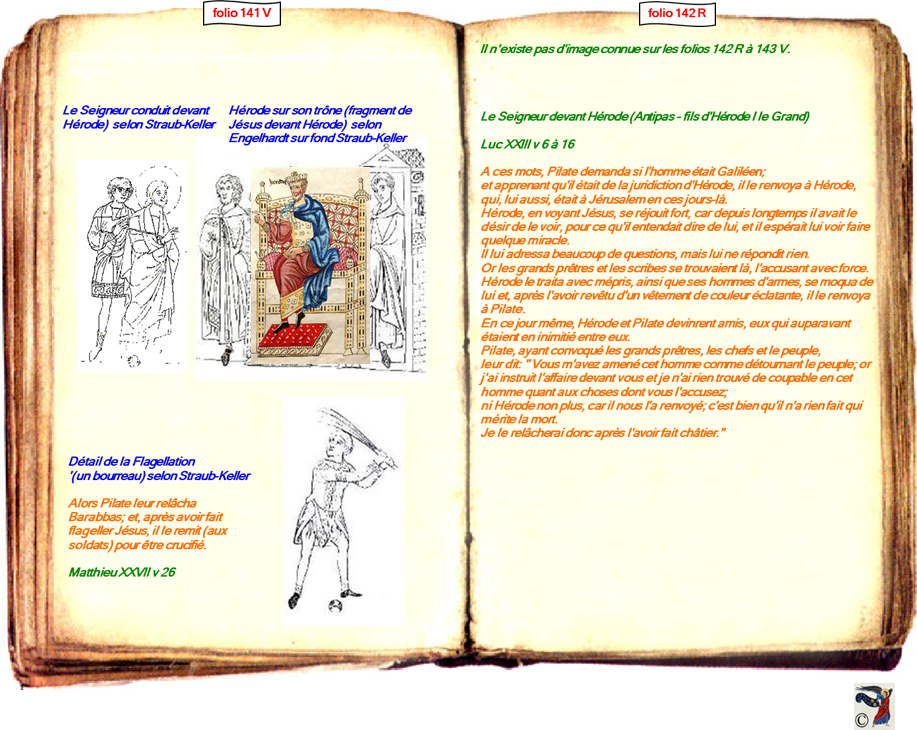 folio 141 V
Le Seigneur conduit devant
Hérode) selon Straub-Keller
Hérode sur son trône (fragment de
Jésus devant Hérode) selon
Engelhardt sur fond Straub-Keller
Détail de la Flagellation
'(un bourreau) selon Straub-Keller
Alors Pilate leur relâcha
Barabbas; et, après avoir fait
flageller Jésus, il le remit (aux
soldats) pour être crucifié.
Matthieu XXVII v 26
folio 142 R
Il n'existe pas d'image connue sur les folios 142 R à 143 V.
Le Seigneur devant Hérode (Antipas - fils d'Hérode I le Grand)
Luc XXIII v 6 à 16
A ces mots, Pilate demanda si l'homme était Galiléen;
et apprenant qu'il était de la juridiction d'Hérode, il le renvoya à Hérode,
qui, lui aussi, était à Jérusalem en ces jours-là.
Hérode, en voyant Jésus, se réjouit fort, car depuis longtemps il avait le
désir de le voir, pour ce qu'il entendait dire de lui, et il espérait lui voir faire
quelque miracle.
Il lui adressa beaucoup de questions, mais lui ne répondit rien.
Or les grands prêtres et les scribes se trouvaient là, l'accusant avec force.
Hérode le traita avec mépris, ainsi que ses hommes d'armes, se moqua de
lui et, après l'avoir revêtu d'un vêtement de couleur éclatante, il le renvoya
à Pilate.
En ce jour même, Hérode et Pilate devinrent amis, eux qui auparavant
étaient en inimitié entre eux.
Pilate, ayant convoqué les grands prêtres, les chefs et le peuple,
leur dit: " Vous m'avez amené cet homme comme détournant le peuple; or
j'ai instruit l'affaire devant vous et je n'ai rien trouvé de coupable en cet
homme quant aux choses dont vous l'accusez;
ni Hérode non plus, car il nous l'a renvoyé; c'est bien qu'il n'a rien fait qui
mérite la mort.
Je le relâcherai donc après l'avoir fait châtier."
©